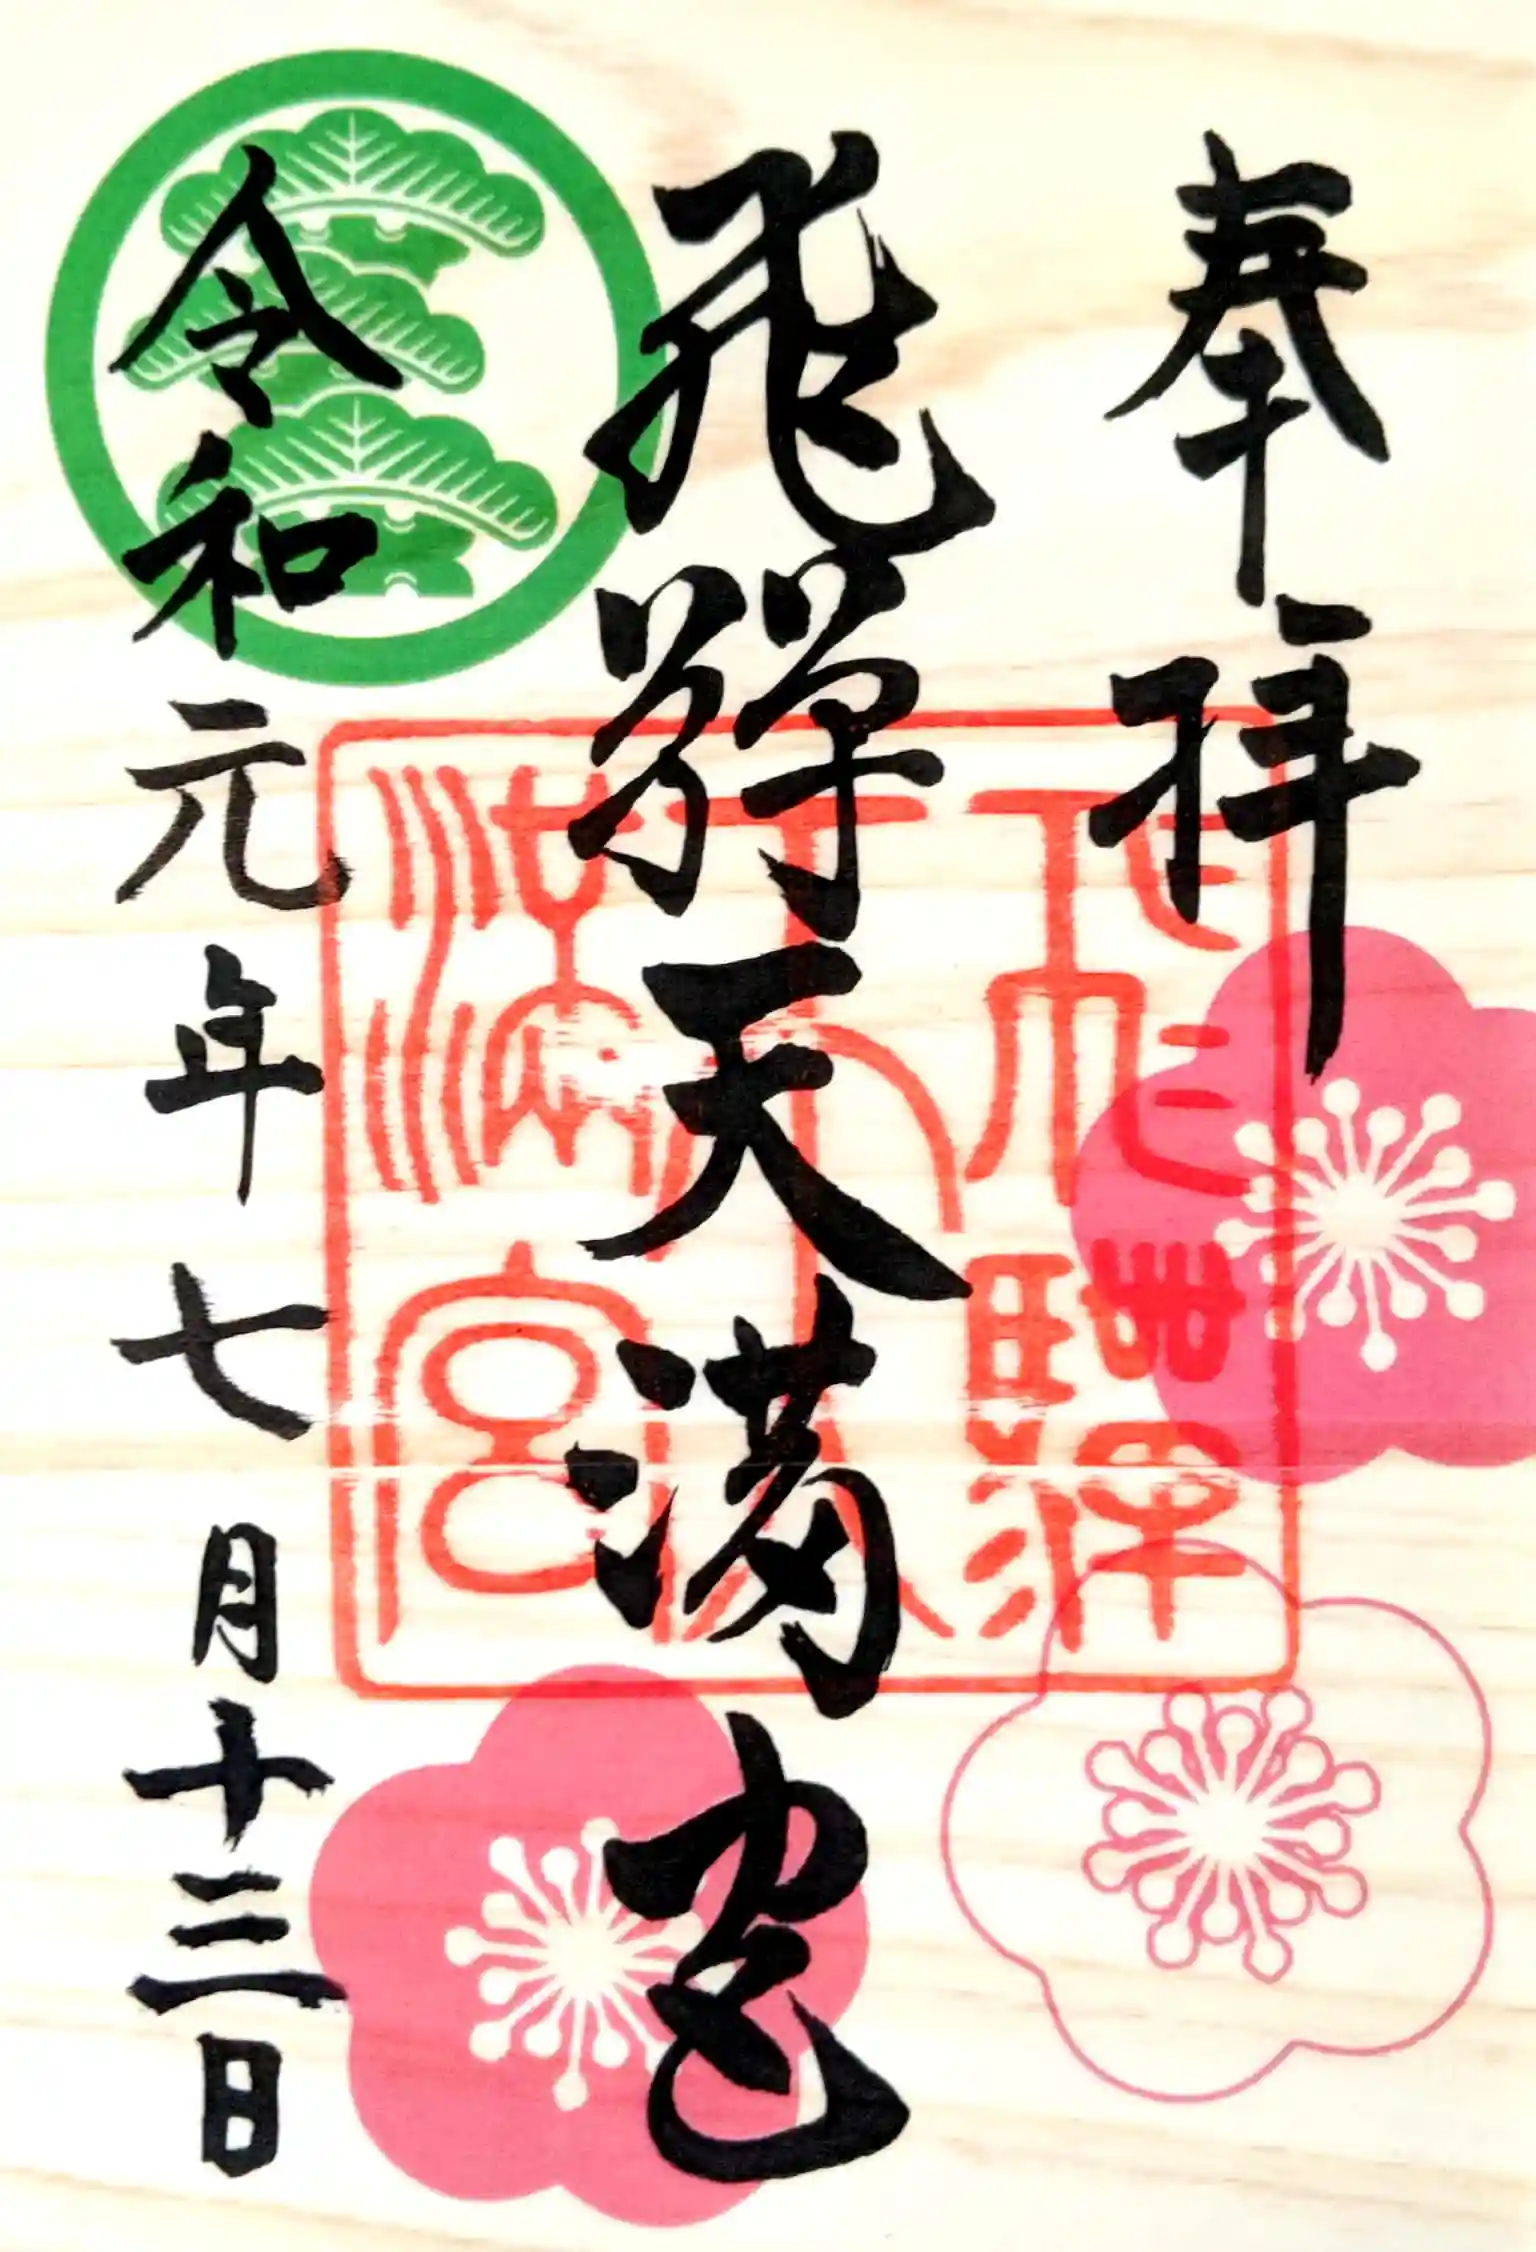 奉拝
飛騨天満宮
令和元年七月十三日
飛騨
天満宮